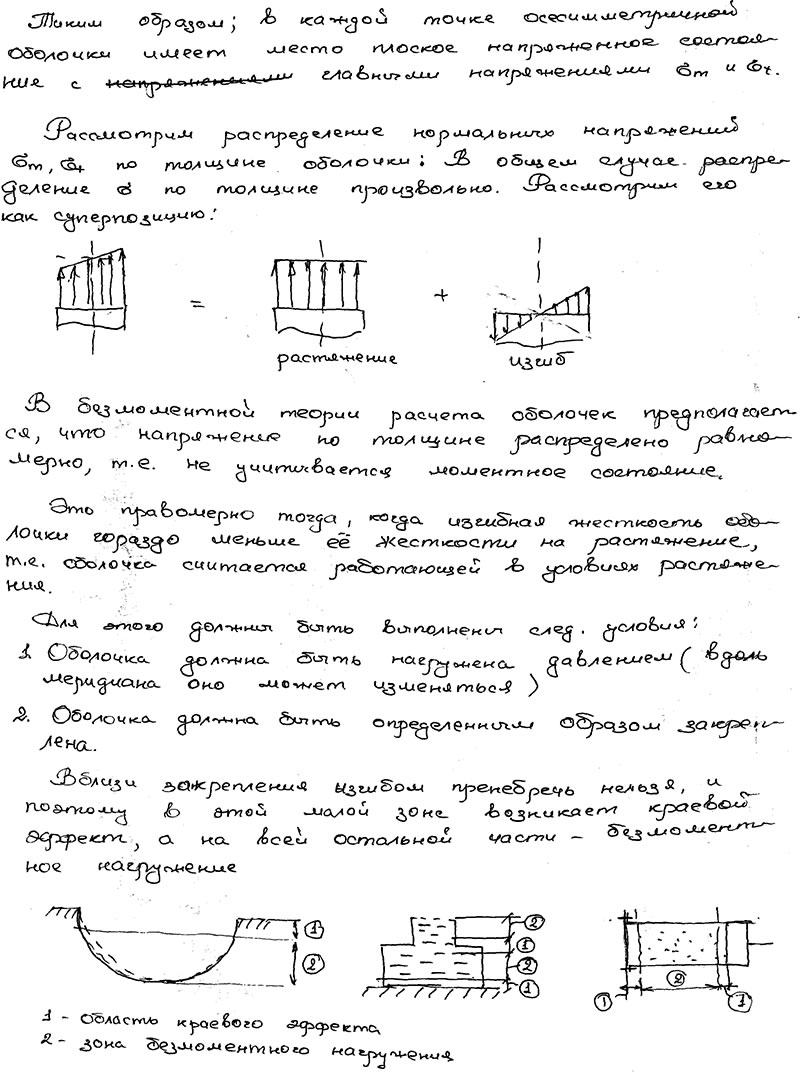 Таким образом; в каждой точке осесимметричной
оболочки имеет место плоское напряженное состоя-
ние с напряжениями главными напряжениями σm и σt.
Рассмотрим распределение нормальных напряжений
σm, σt по толщине оболочки: В общем случае распре-
деление σ по толщине произвольно. Рассмотрим его
как суперпозицию:
= +
растяжение изгиб
В безмоментной теории расчета оболочек предполагает-
ся, что напряжение по толщине распределено равно-
мерно, т.е. не учитывается моментное состояние.
Это правомерно тогда, когда изгибная жесткость обо-
лочки гораздо меньше её жесткости на растяжение,
т.е. оболочка считается работающей в условиях растяже-
ния.
Для этого должны быть выполнены след. условия:
1. Оболочка должна быть нагружена давлением (вдоль
меридиана оно может изменяться)
2. Оболочка должна быть определенным образом закреп-
лена.
Вблизи закрепления изгибом пренебречь нельзя, и
поэтому в этой малой зоне возникает краевой
эффект, а на всей остальной части – безмомент-
ное нагружение
1 2
2 1 2 1
1 2 1
1 - область краевого эффекта
2 - зона безмоментного нагружения